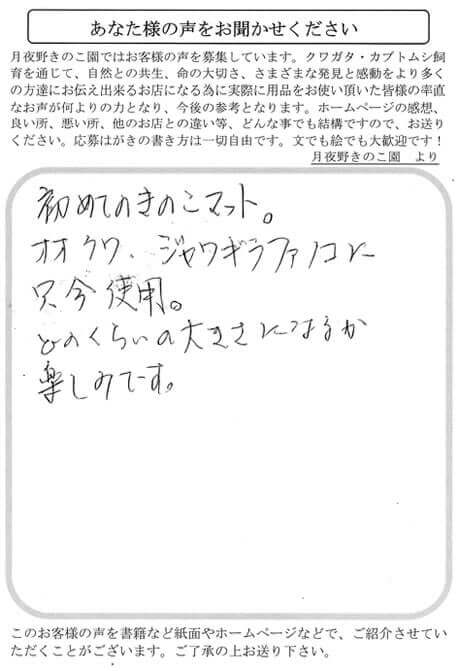 あなた様の声をお聞かせください
月夜野きのこ園ではお客様の声を募集しています。クワガタ・カブトムシ飼
育を通じて、自然との共生、命の大切さ、さまざまな発見と感動をより多く
の方達にお伝え出来るお店になる為に実際に用品をお使い頂いた皆様の率直
なお声が何よりの力となり、今後の参考となります。ホームページの感想、
良い所、悪い所、他のお店との違い等、どんな事でも結構ですので、お送り
ください。応募はがきの書き方は一切自由です。文でも絵でも大歓迎です！
月夜野きのこ園　より
初めてのきのこマット。
オオクワ、ジャワギラファノコに
只今使用。
どのくらいの大きさになるか
楽しみです。
このお客様の声を書籍など紙面やホームページなどで、ご紹介させてい
ただくことがございます。ご了承の上お送り下さい。